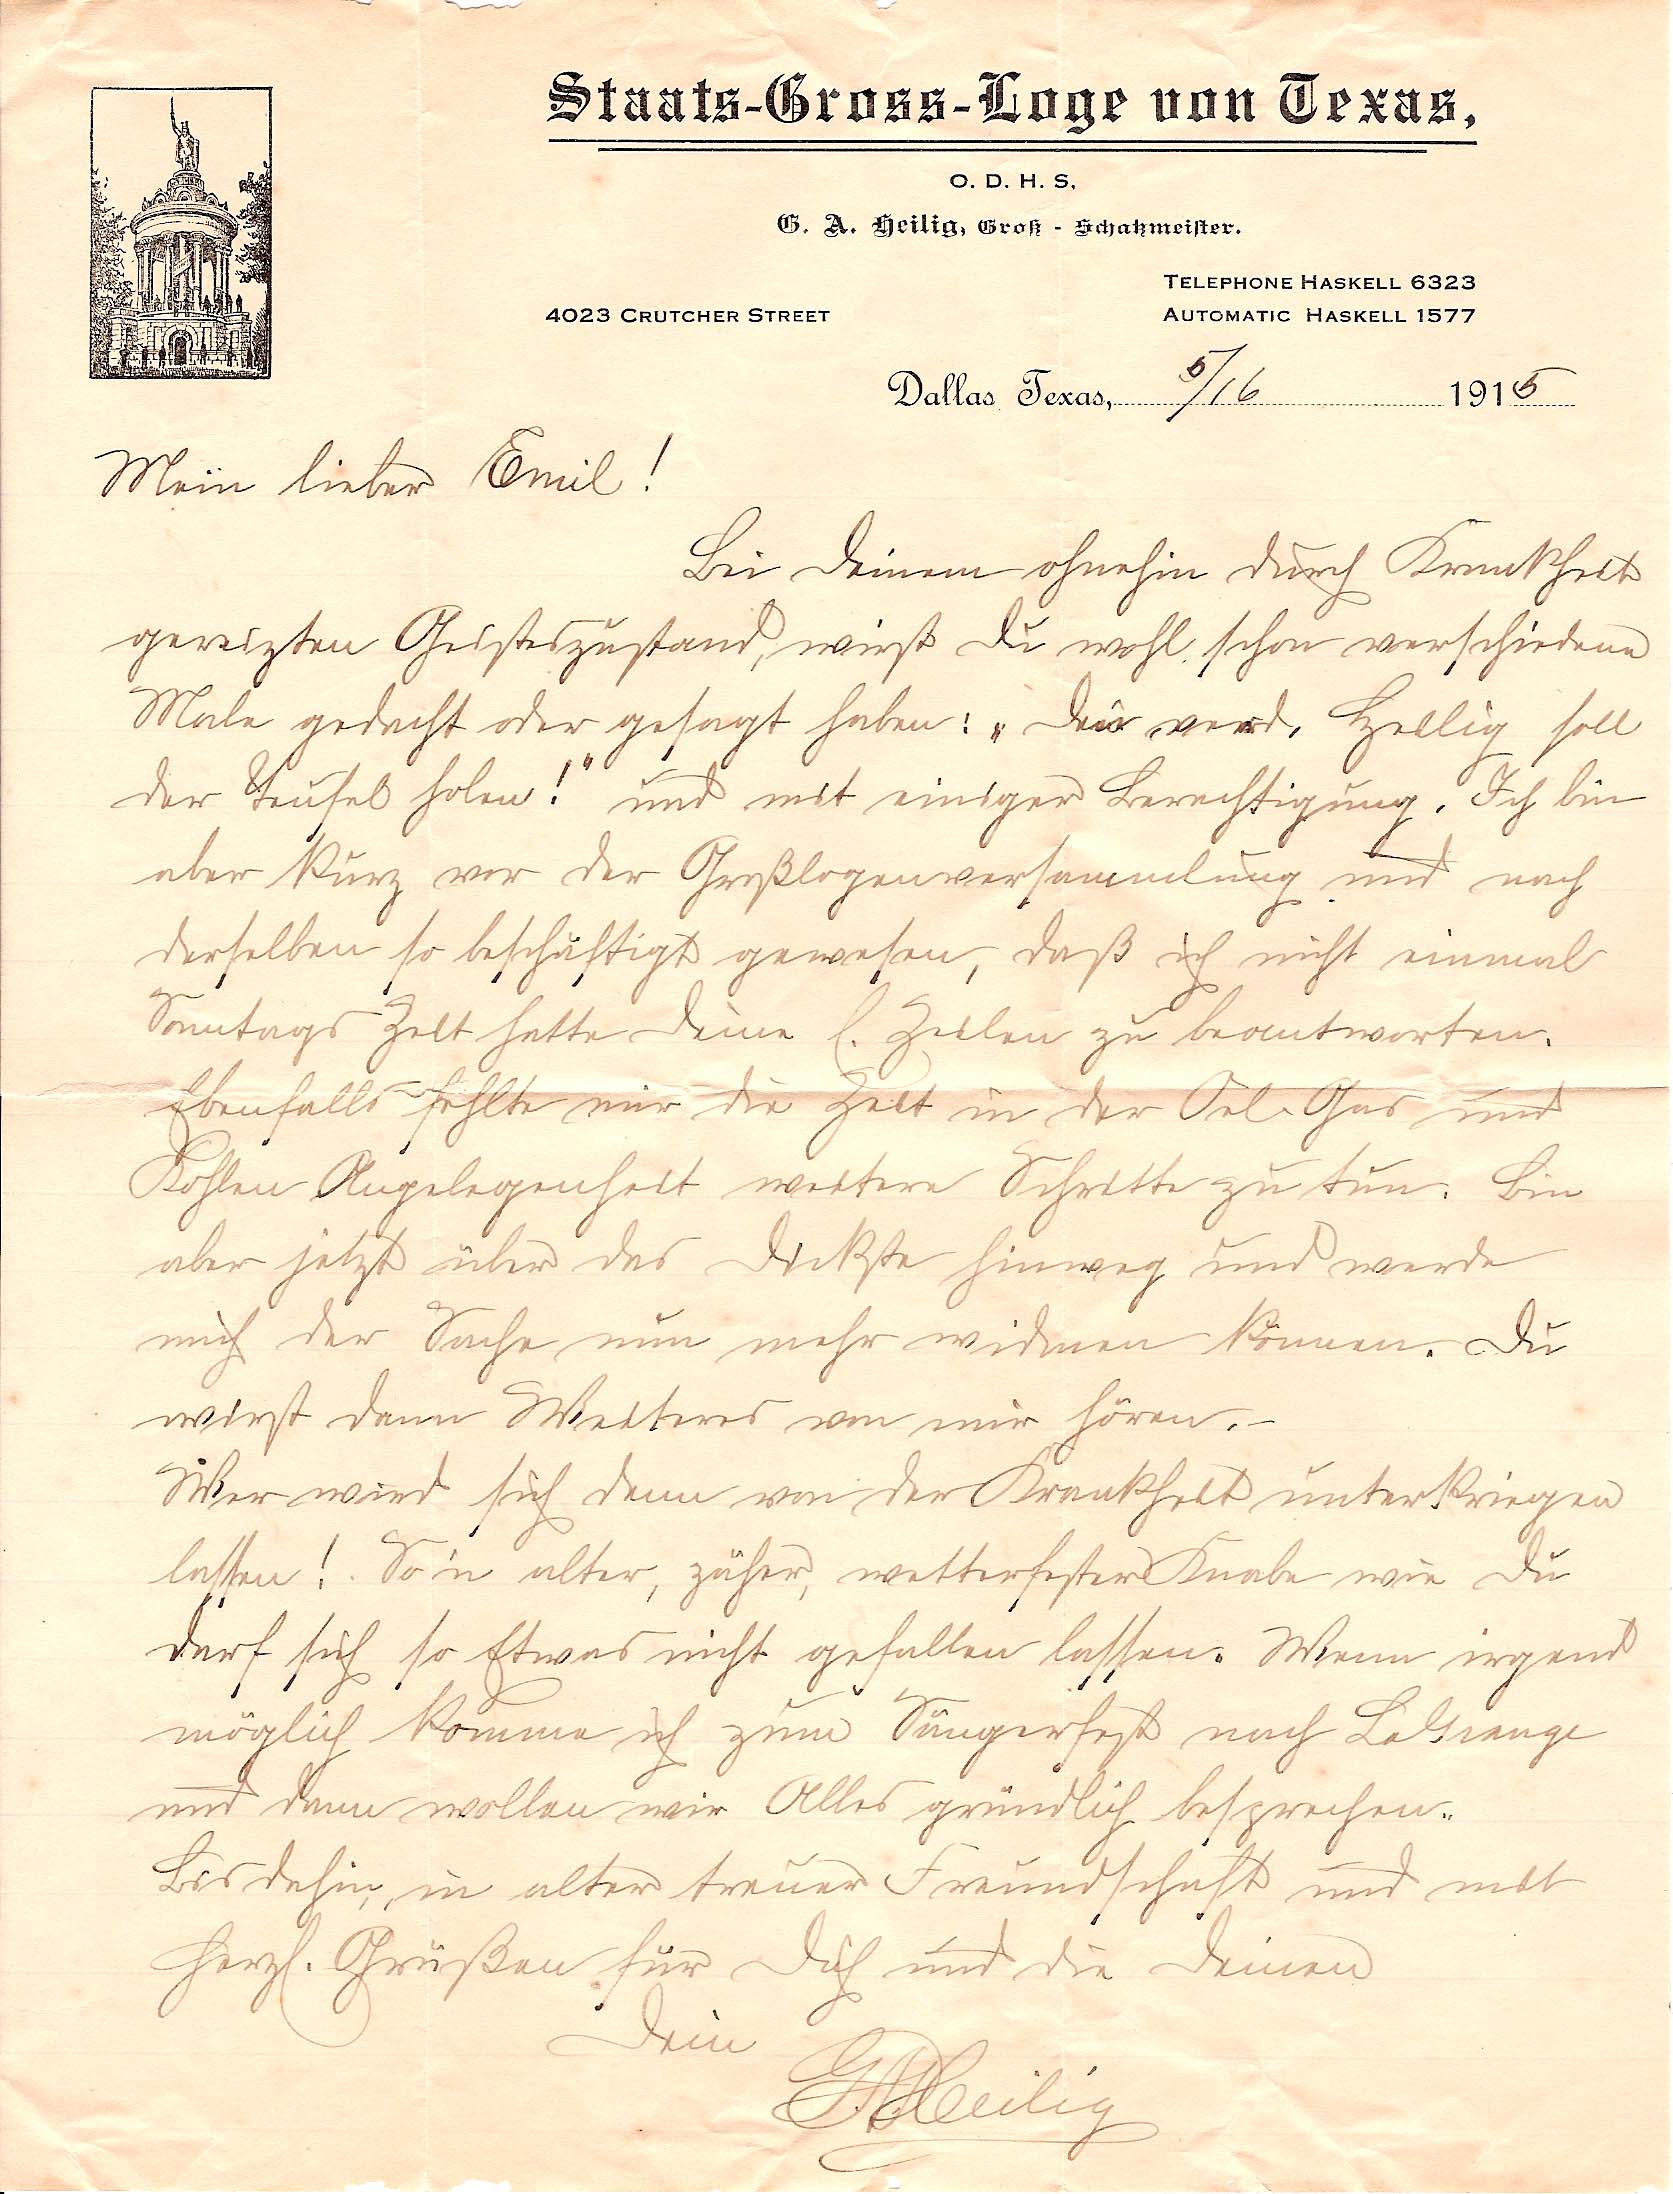 Staats-Gross-Loge von Texas,
O. D. H. S.
G. A. Heilig, Groß - Schatzmeister.
TELEPHONE HASKELL 6323
4023 CRUTCHER STREET AUTOMATIC HASKELL 1577
Dallas Texas, 5/16 1915
Mein lieber Emil!
Bei Deinem ohnehin durch Krankheit
gereizten Geisteszustand, wirst Du wohl schon verschiedene
Male gedacht oder gesagt haben: „Den verd. Heilig soll
der Teufel holen!" und mit einiger Berechtigung. Ich bin
aber kurz vor der Großlogenversammlung und nach
derselben so beschäftigt gewesen, daß ich nicht einmal
Sonntags Zeit hatte Deine l. Zeilen zu beantworten.
Ebenfalls fehlte mir die Zeit in der Oel-Gas und
Kohlen Angelegenheit weitere Schritte zu tun. Bin
aber jetzt über das Dickste hinweg und werde
mich der Sache nun mehr widmen können. Du
wirst dann Weiteres von mir hören.–
Wer wird sich denn von der Krankheit unterkriegen
lassen! So'n alter, zäher, wetterfester Knabe wie Du
darf sich so Etwas nicht gefallen lassen. Wenn irgend
möglich komme ich zum Sängerfest nach LaGrange
und dann wollen wir Alles gründlich besprechen.
Bis dahin, in alter treuer Freundschaft und mit
herzl. Grüßen für Dich und die Deinen
Dein
GAHeilig